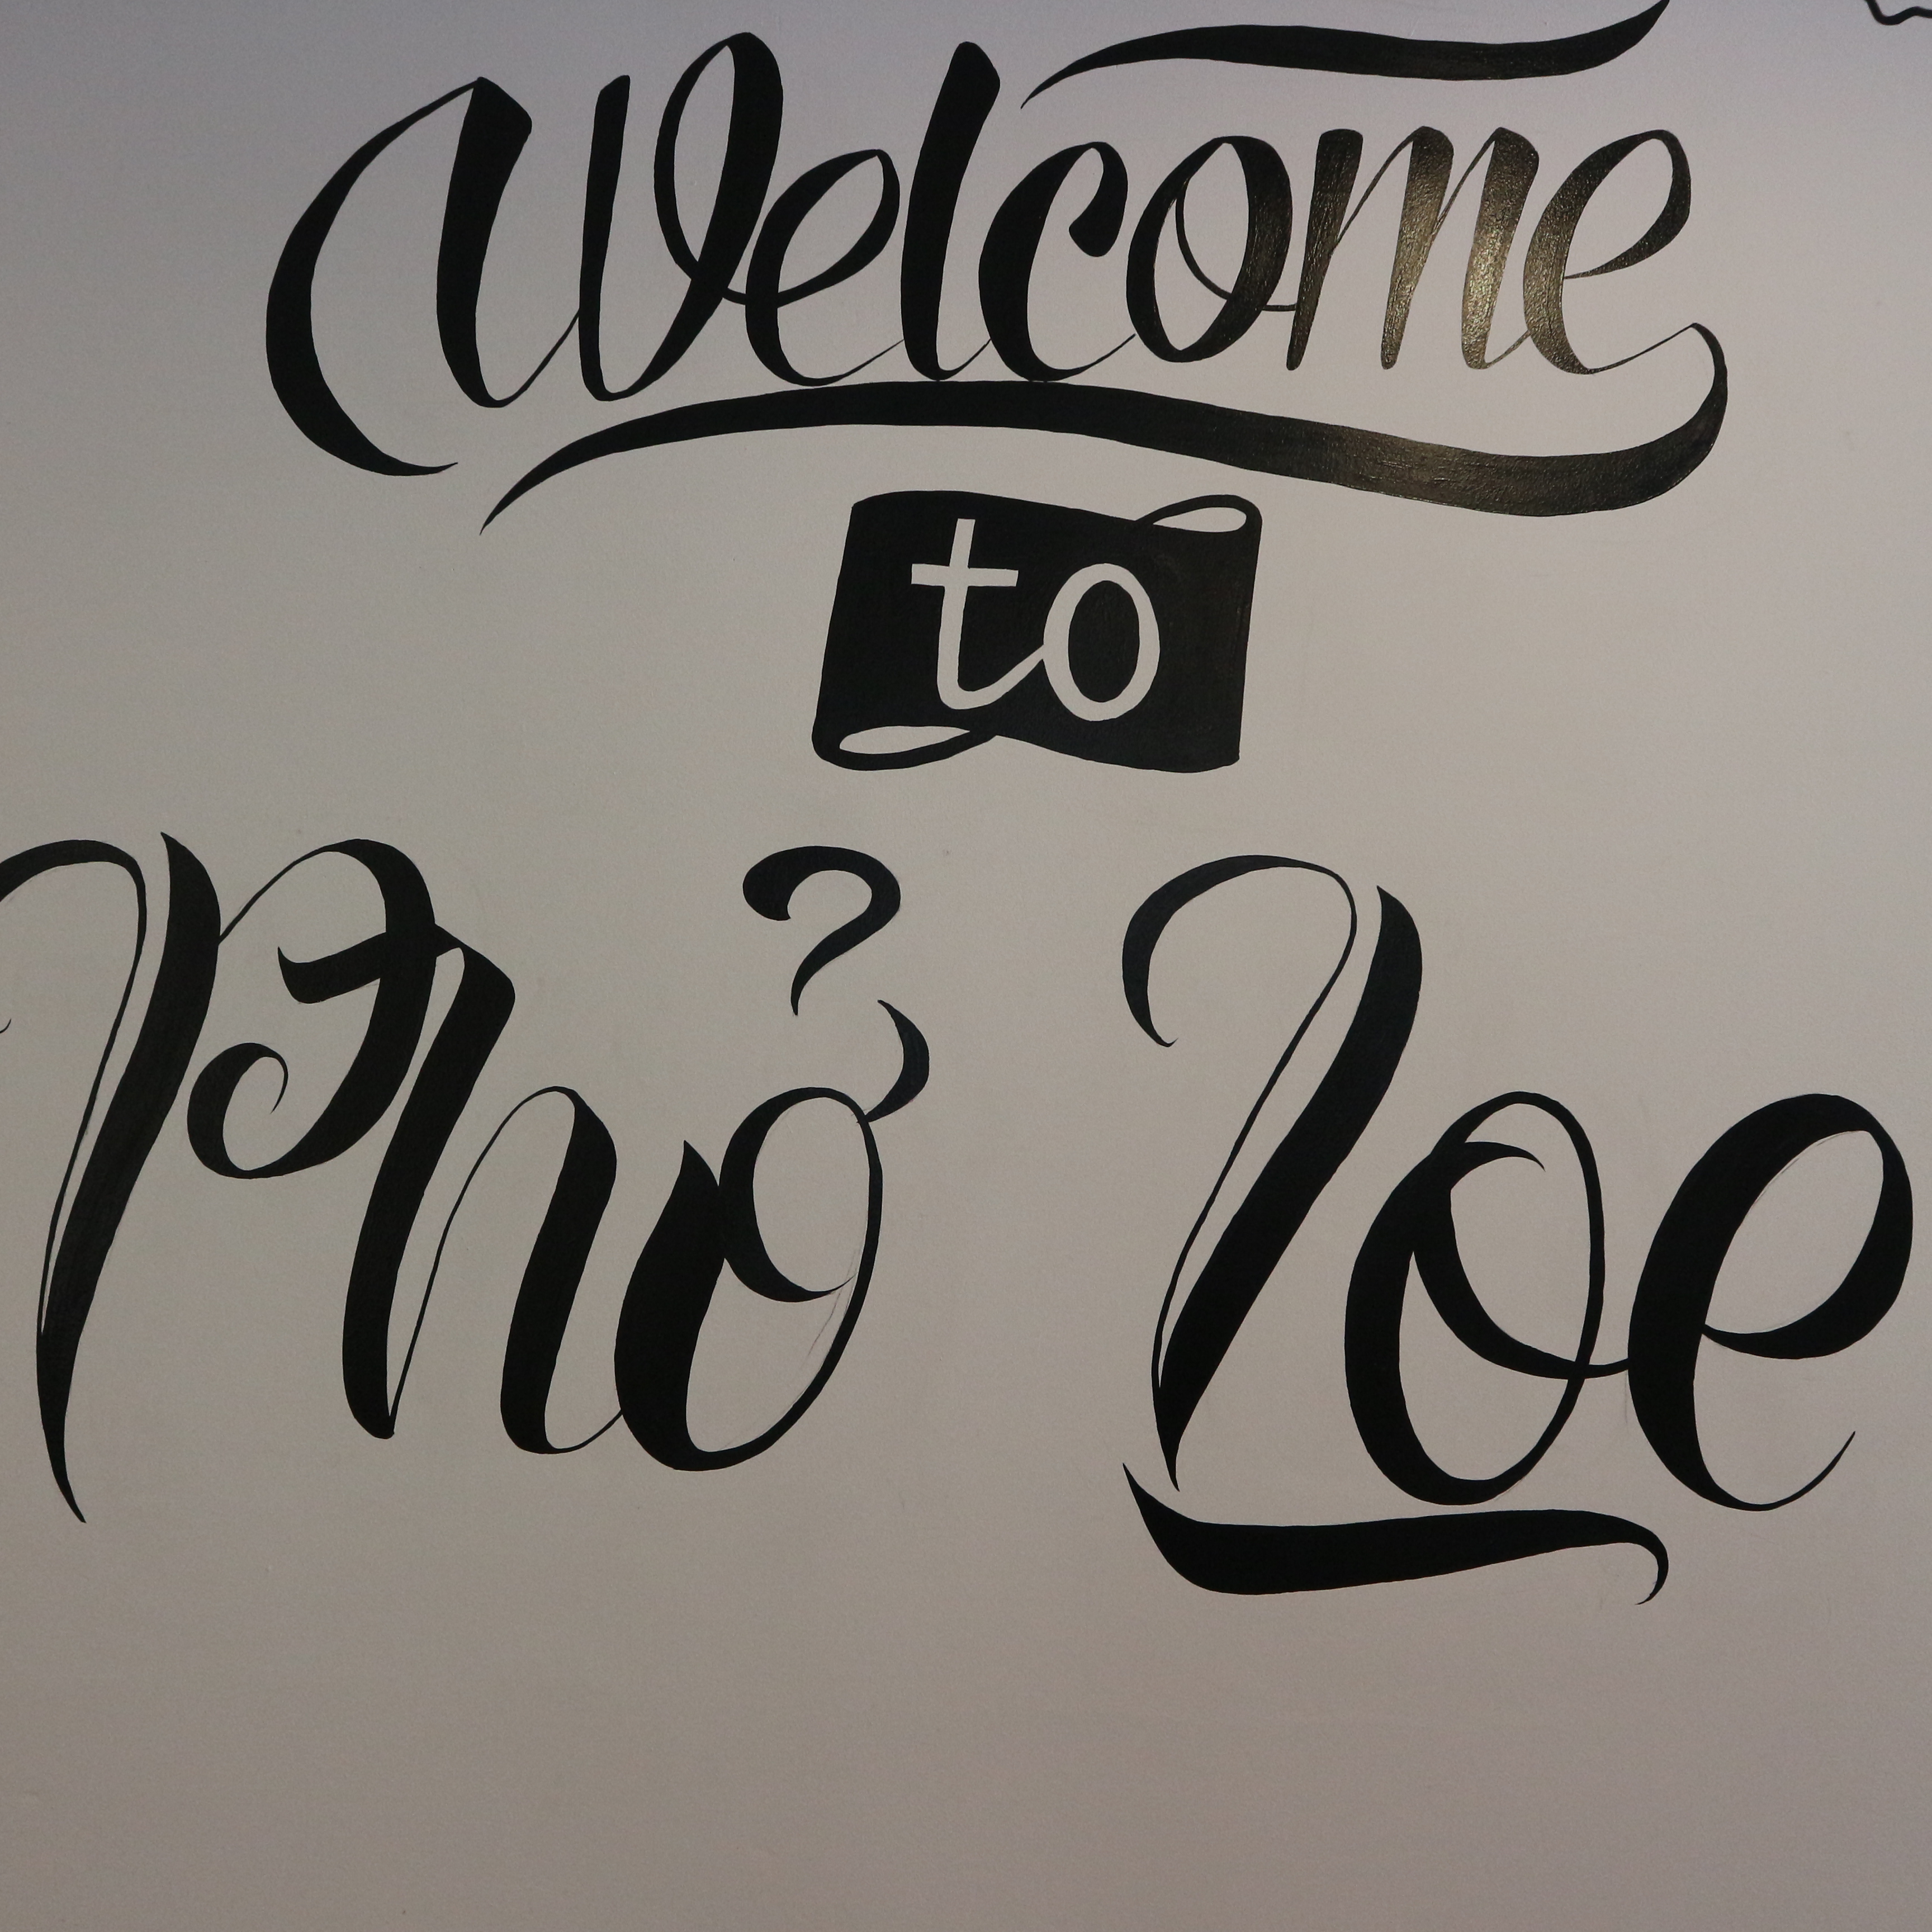 Welcome
to
Phở Zoe